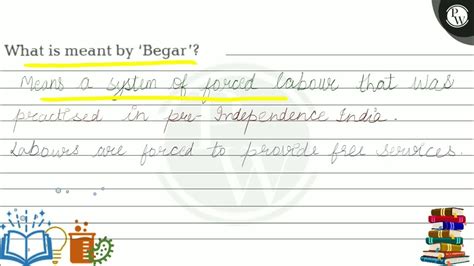 PW
What is meant by 'Begar'?
Means a system of forced labour that was
practised in pre-Independence India.
Labours are forced to provide free services.